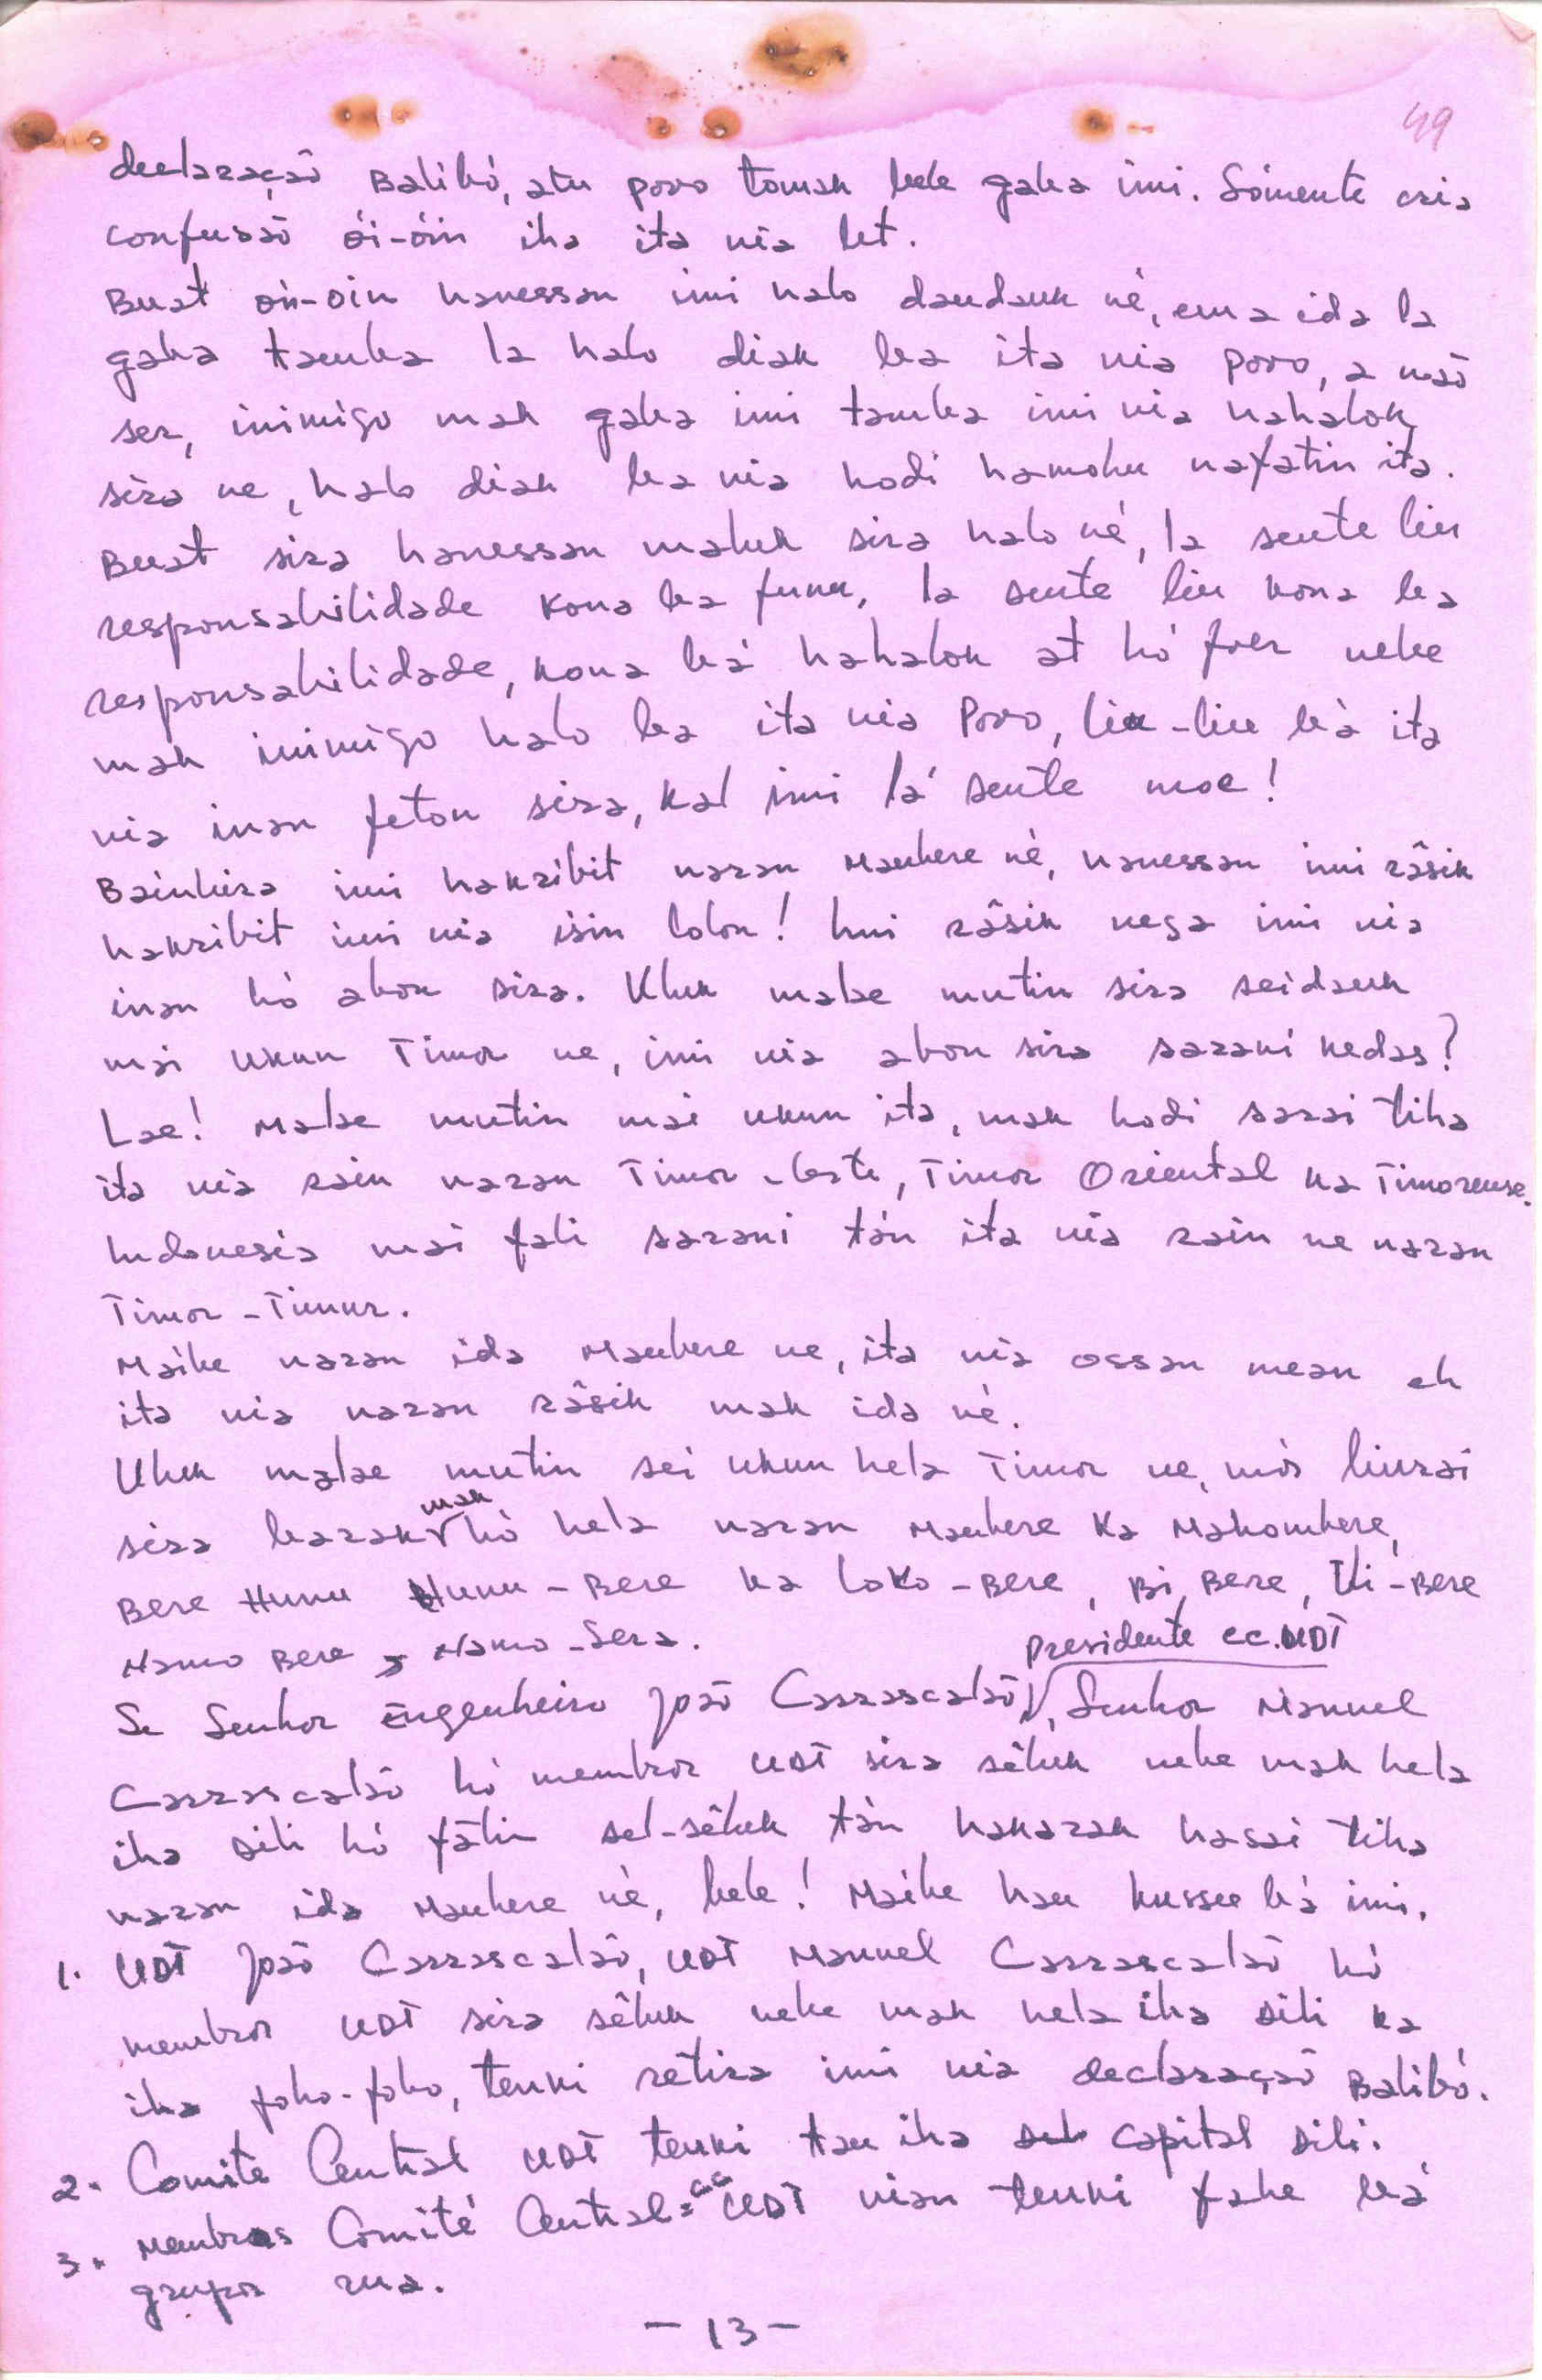 49
declaração Balibó, atu povo tomak bele gaba imi. Sómente cria
confusão ói-óin iha ita nia let.
Buat oin-oin hanessan imi halo daudauk né, ema ida la
gaba tamba la halo diak ba ita nia povo, a não
ser, inimigo mak gaba imi tamba imi nia hahalok
sira ne, halo diak ba nia hodi hamohu nafatin ita.
Buat sira hanessan maluk sira halo né, la sente liu
responsabilidade kona ba funu, la sente liu kona ba
responsabilidade, kona bá hahalok at hó foer nebe
mak inimigo halo ba ita nia Povo, liu-liu bá ita
nia inan feton sira, kal imi lá sente moe!
Bainhira imi hakribit naran Maubere né, hanessan imi râsik
hakribit imi nia isin lolon! Imi râsik nega imi nia
inan hó abon sira. Uluk malae mutin sira seidauk
mai ukun Timor ne, imi nia abon sira sarani kedas?
Lae! Malae mutin mai ukun ita, mak hodi sarai tiha
ita nia rain naran Timor-leste, Timor Oriental ka Timorense.
Indonesia mai fali sarani tán ita nia rain ne naran
Timor-Timur.
Maibe naran ida Maubere ne, ita nia ossan mean eh
ita nia naran râsik mak ida né.
Uluk malae mutin sei ukun hela Timor ne, mós liurai
sira barak mak hó hela naran Maubere ka Makombere,
Bere Hunu Hunu-Bere ka Loko-Bere, Bi Bere, Ili-Bere
Namo Bere, Namo-Sera.
Se Senhor Engenheiro João Carrascalão, presidente cc. UDT, Senhor Manuel
Carrascalão hó membror UDT sira sêluk nebe mak hela
iha Dili hó fâtin sel-sêluk tán hakarak hasai tiha
naran ida Maubere né, bele! Maibe hau hussu bá imi.
1. UDT João Carrascalão, UDT Manuel Carrascalão hó
membror UDT sira sêluk nebe mak hela iha Dili ka
iha foho-foho, tenki retira imi nia declaração Balibó.
2. Comite Central UDT tenki tau iha capital Dili.
3. Membros Comité Central = CC UDT nian tenki fahe bá
grupor rua.
- 13 -